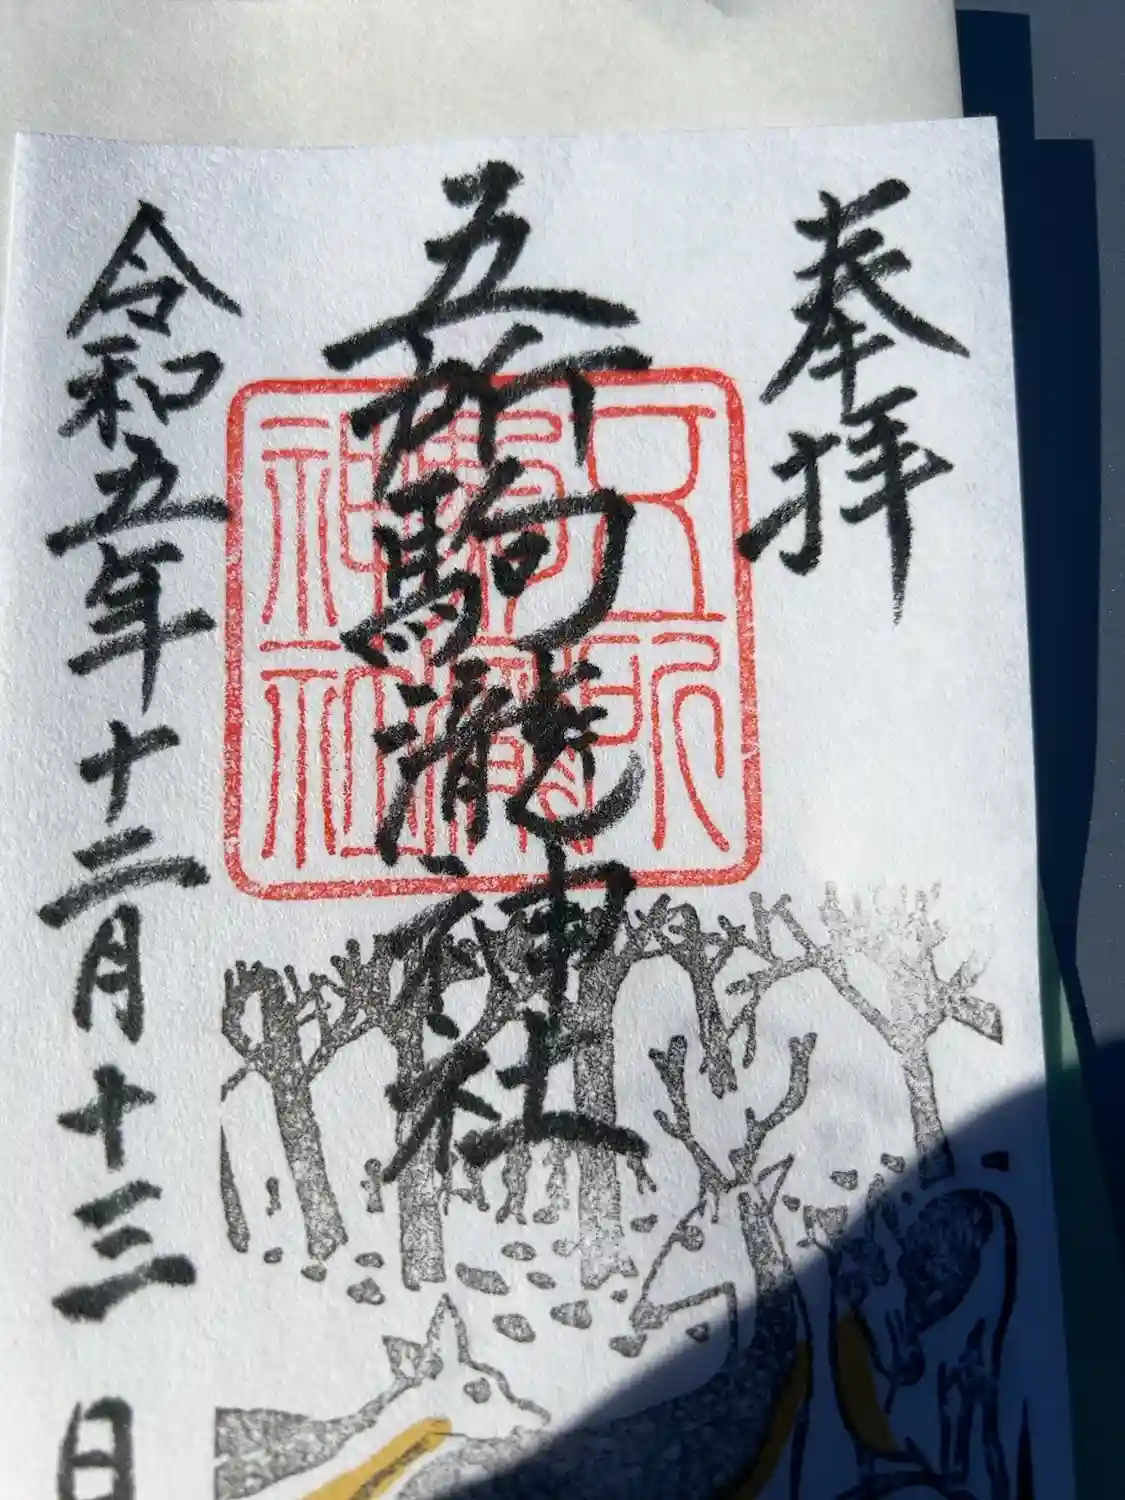 奉拝
五所駒瀧神社
五所駒瀧神社
令和五年十二月十三日